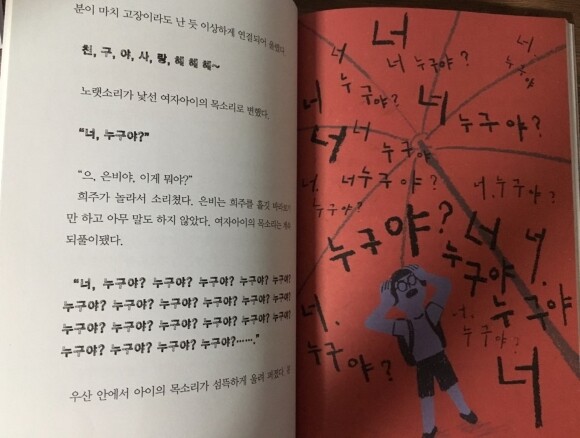 분이 마치 고장이라도 난 듯 이상하게 연결되어 울렸다.
친, 구, 야, 사, 랑, 해 해 해~
노랫소리가 낯선 여자아이의 목소리로 변했다.
“너, 누구야?”
“으, 은비야. 이게 뭐야?”
희주가 놀라서 소리쳤다. 은비는 희주를 흘깃 바라보기
만 하고 아무 말도 하지 않았다. 여자아이의 목소리는 계속
되풀이됐다.
“너, 누구야? 누구야? 누구야? 누구야? 누구야?
누구야? 누구야? 누구야? 누구야? 누구야? 누구야?
누구야? 누구야? 누구야? 누구야? 누구야? 누구야?
누구야? 누구야? 누구야? 누구야?……”
우산 안에서 아이의 목소리가 섬뜩하게 울려 퍼졌다.
너
너.
너
너 누구야?
누구야?
누구야?
너
너
누구야?
너
너
누구야
너.
너 누구야?
너. 누구야?
누구야?
누구야?
너
너.
누구야
누구야
너.
너.
누구야?
누구야?
너